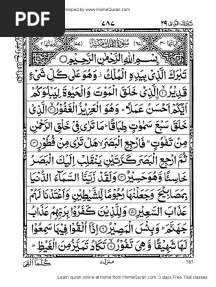 PDF
eloped by www.HomeQuran.com
تَبٰرَكَ الَّذِیْ ٢٩
٧٨٧
بِسْمِ اللهِ الرَّحْمٰنِ الرَّحِيْمِ
تَبٰرَكَ الَّذِیْ بِيَدِهِ الْمُلْكُ وَهُوَ عَلٰی كُلِّ شَیْءٍ
قَدِيْرُ الَّذِیْ خَلَقَ الْمَوْتَ وَالْحَيٰوةَ لِيَبْلُوَكُمْ
اَيُّكُمْ اَحْسَنُ عَمَلًا وَهُوَ الْعَزِيْزُ الْغَفُوْرُ الَّذِیْ
خَلَقَ سَبْعَ سَمٰوٰتٍ طِبَاقًا مَا تَرٰی فِیْ خَلْقِ الرَّحْمٰنِ
مِنْ تَفٰوُتٍ فَارْجِعِ الْبَصَرَ هَلْ تَرٰی مِنْ فُطُوْرٍ
ثُمَّ ارْجِعِ الْبَصَرَ كَرَّتَيْنِ يَنْقَلِبْ اِلَيْكَ الْبَصَرُ
خَاسِئًا وَّهُوَ حَسِيْرٌ وَلَقَدْ زَيَّنَّا السَّمَآءَ الدُّنْيَا
بِمَصَابِيْحَ وَجَعَلْنٰهَا رُجُوْمًا لِّلشَّيٰطِيْنِ وَاَعْتَدْنَا لَهُمْ
عَذَابَ السَّعِيْرِ وَلِلَّذِيْنَ كَفَرُوْا بِرَبِّهِمْ عَذَابُ
جَهَنَّمَ وَبِئْسَ الْمَصِيْرُ اِذَآ اُلْقُوْا فِيْهَا سَمِعُوْا
لَهَا شَهِيْقًا وَّهِیَ تَفُوْرُ تَكَادُ تَمَيَّزُ مِنَ الْغَيْظِ
كُلَّمَآ اُلْقِیَ
787
Learn quran online at home from HomeQuran.com. 3 days Free Trial classes